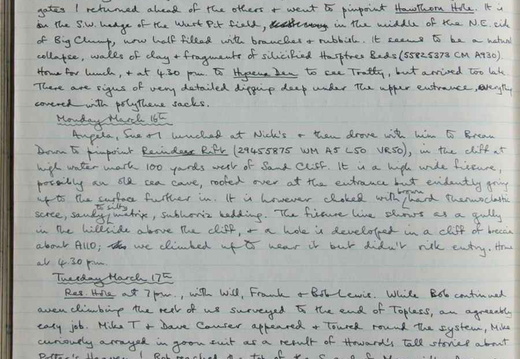 gates I returned ahead of the others & went to pinpoint Hawthorn Hole. It is
on the S.W. hedge of the Wurt Pit field, in the middle of the N.E. side
of Big Clump, now half filled with branches & rubbish. It seems to be a natural
collapse, walls of clay & fragments of silicified Harptree Beds (55825373 CM A930).
Home for lunch, & at 4.30 pm. to Hyaena Den to see Tratty, but arrived too late.
There are signs of very detailed digging deep under the upper entrance, everything
covered with polythene sacks.
Monday March 16th
Angela, Sue & I lunched at Nick's & then drove with him to Brean
Down to pinpoint Reindeer Rift (29455875 WM A5 L50 VR50), in the cliff at
high water mark 100 yards west of Sand Cliff. It is a high wide fissure,
possibly an old sea cave, roofed over at the entrance but evidently going
up to the surface further in. It is however choked with brown hard thermoclastic
scree, sandy to silty matrix, subhoriz bedding. The fissure line shows as a gully
in the hillside above the cliff, & a hole is developed in a cliff of breccia
about A110; we climbed up to near it but didn't risk entry. Home
at 4.30 pm.
Tuesday March 17th
Res. Hole at 7 pm., with Will, Frank & Bob Lewis. While Bob continued
aven climbing the rest of us surveyed to the end of Topless, an agreeably
easy job. Mike T & Dave Causer appeared & toured round the system, Mike
curiously arrayed in goon suit as a result of Howard's tall stories about